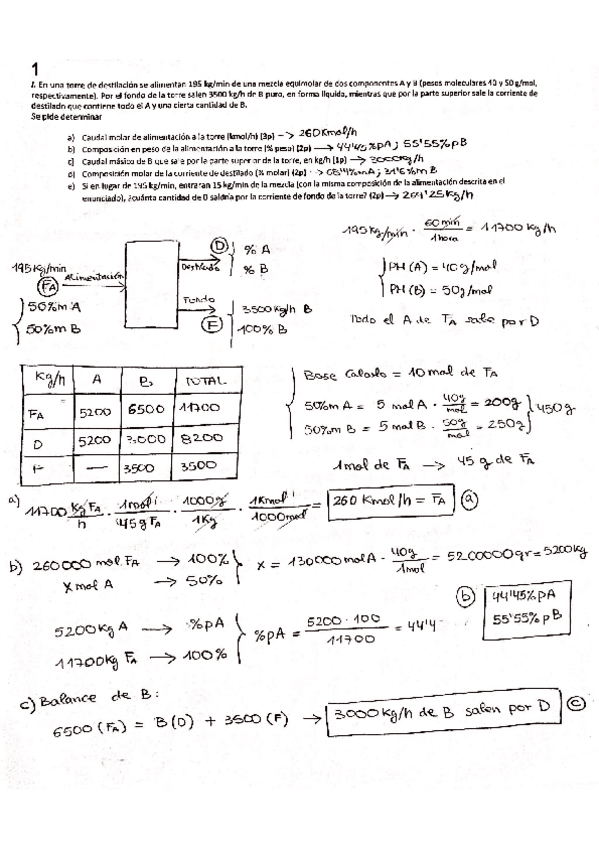 1
I. En una torre de destilación se alimentan 195 kg/min de una mezcla equimolar de dos componentes A y B (pesos moleculares 40 y 50 g/mol,
respectivamente). Por el fondo de la torre salen 3500 kg/h de B puro, en forma líquida, mientras que por la parte superior sale la corriente de
destilado que contiene todo el A y una cierta cantidad de B.
Se pide determinar
a) Caudal molar de alimentación a la torre (kmol/h) (3p) -> 260 Kmol/h
b) Composición en peso de la alimentación a la torre (% peso) (2p) → 44'45% pA ; 55'55% pB
c) Caudal másico de B que sale por la parte superior de la torre, en kg/h (1p) → 3000 Kg/h
d) Composición molar de la corriente de destilado (% molar) (2p) → 68'4% mA ; 31'6% m B
e) Si en lugar de 195 kg/min, entraran 15 kg/min de la mezcla (con la misma composición de la alimentación descrita en el
enunciado), ¿cuánta cantidad de B saldría por la corriente de fondo de la torre? (2p) → 269'25 Kg/h
195 Kg/min · 60 min / 1 hora = 11700 Kg/h
195 Kg/min
FA Alimentación
50% m A
50% m B
Destilado D
% A
% B
Fondo F
3500 Kg/h B
100% B
PM (A) = 40 g/mol
PM (B) = 50 g/mol
Todo el A de FA sale por D
Kg/h A B TOTAL
FA 5200 6500 11700
D 5200 3000 8200
F — 3500 3500
Base Cálculo = 10 mol de FA
50% m A = 5 mol A · 40g/mol = 200g
50% m B = 5 mol B · 50g/mol = 250g
450 g
1 mol de FA → 45 g de FA
a) 11700 Kg FA/h · 1 mol/45 g FA · 1000 g/1 Kg · 1 Kmol/1000 mol = 260 Kmol/h = FA (a)
b) 260000 mol FA → 100%
X mol A → 50%
X = 130000 mol A · 40g/1mol = 5200000 gr = 5200 Kg
(b) 44'45% pA
55'55% pB
5200 Kg A → % pA
11700 Kg FA → 100%
% pA = 5200 · 100 / 11700 = 44'4
c) Balance de B:
6500 (FA) = B (D) + 3500 (F) → 3000 Kg/h de B salen por D (c)